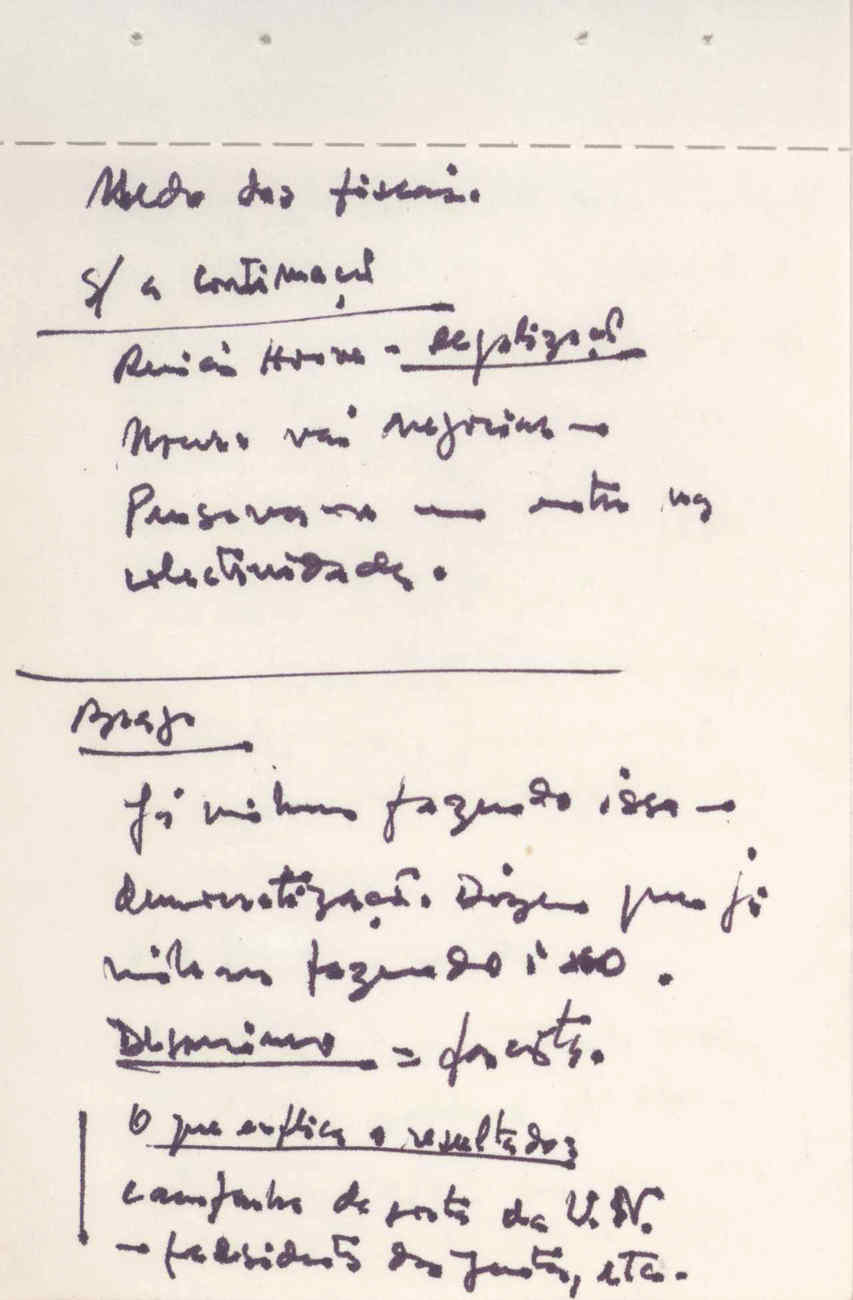 Medo dos fiscais.
S/ a continuação
Reunião Houve - legalização
vai negociar -
Pensava-se entre na
colectividade.
Braga
Já vinham fazendo isso -
democratização. Dizem que já
vinham fazendo isso.
= fascista.
O que explica o resultado
campanha de porta da U.N.
- presidentes das Juntas, etc.